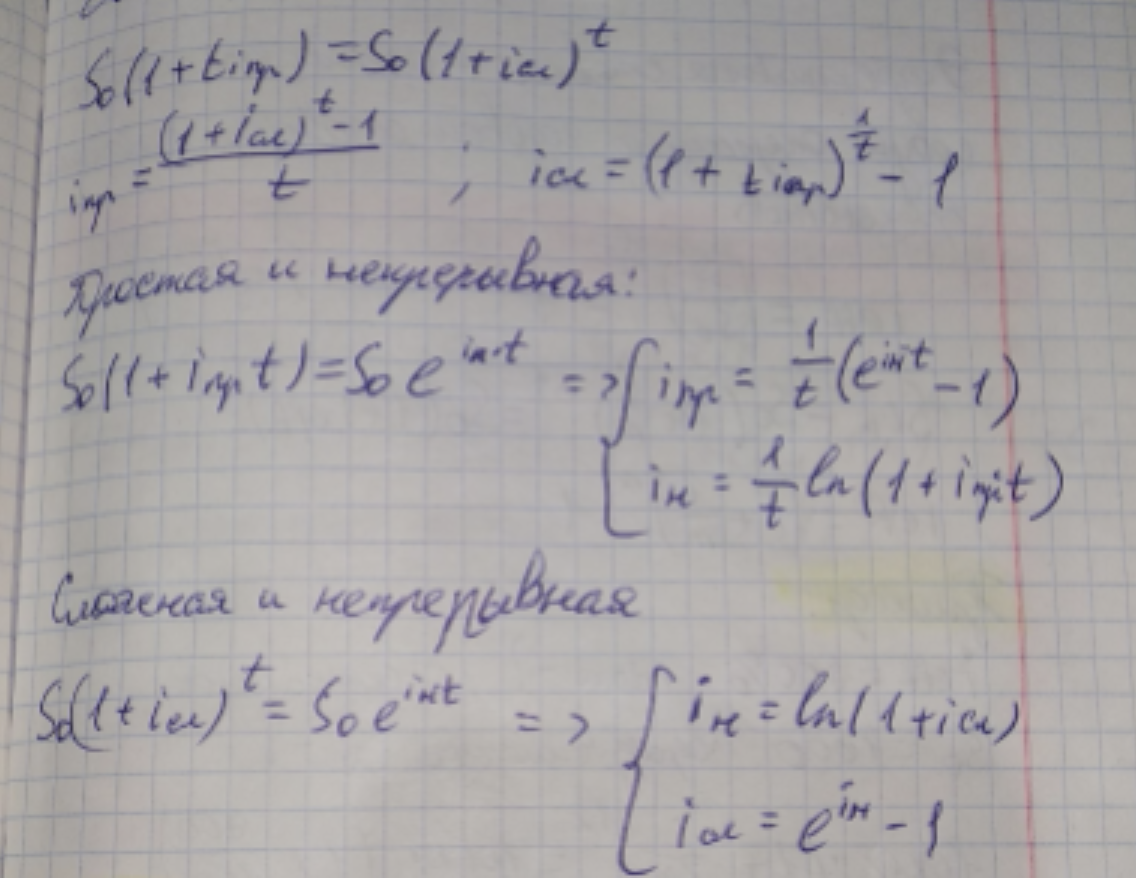 S₀(1+t iпр) = S₀(1+iсл)^t
iпр = ((1+iсл)^t - 1)/t ; iсл = (1+ t iпр)^(1/t) - 1
Простая и непрерывная:
S₀(1+iпр t) = S₀ e^(iн·t) => { iпр = 1/t (e^(iн t) - 1)
iн = 1/t ln(1+iпр t)
Сложная и непрерывная
S₀(1+iсл)^t = S₀ e^(iн t) => { iн = ln(1+iсл)
iсл = e^(iн) - 1